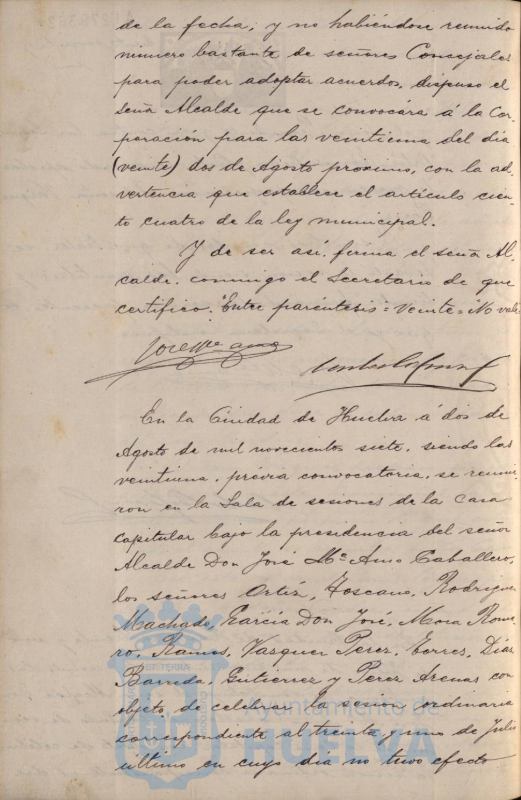 de la fecha; y no habiéndose reunido
número bastante de señores Concejales
para poder adoptar acuerdos, dispuso el
Señor Alcalde que se convocára á la Cor-
poración para las veintiuna del dia
(veinte) dos de Agosto próximo, con la ad-
vertencia que establece el artículo cien-
to cuatro de la ley municipal.
Y de ser así, firma el señor Al-
calde, conmigo el Secretario de que
certifico. Entre paréntesis = veinte = No vale
En la Ciudad de Huelva á dos de
Agosto de mil novecientos siete, siendo las
veintiuna, prévia convocatoria, se reunie-
ron en la Sala de sesiones de la Casa
capitular bajo la presidencia del señor
Alcalde Don José Mª Amo Caballero,
los señores Ortiz, Toscano, Rodriguez
Machado, García Don José, Mora Rome-
ro, Ramos, Vazquez Perez, Torres, Diaz
Barreda, Gutierrez y Perez Arenas con
objeto de celebrar la sesion ordinaria
correspondiente al treinta y uno de Julio
último en cuyo dia no tuvo efecto
Ayuntamiento de
HUELVA